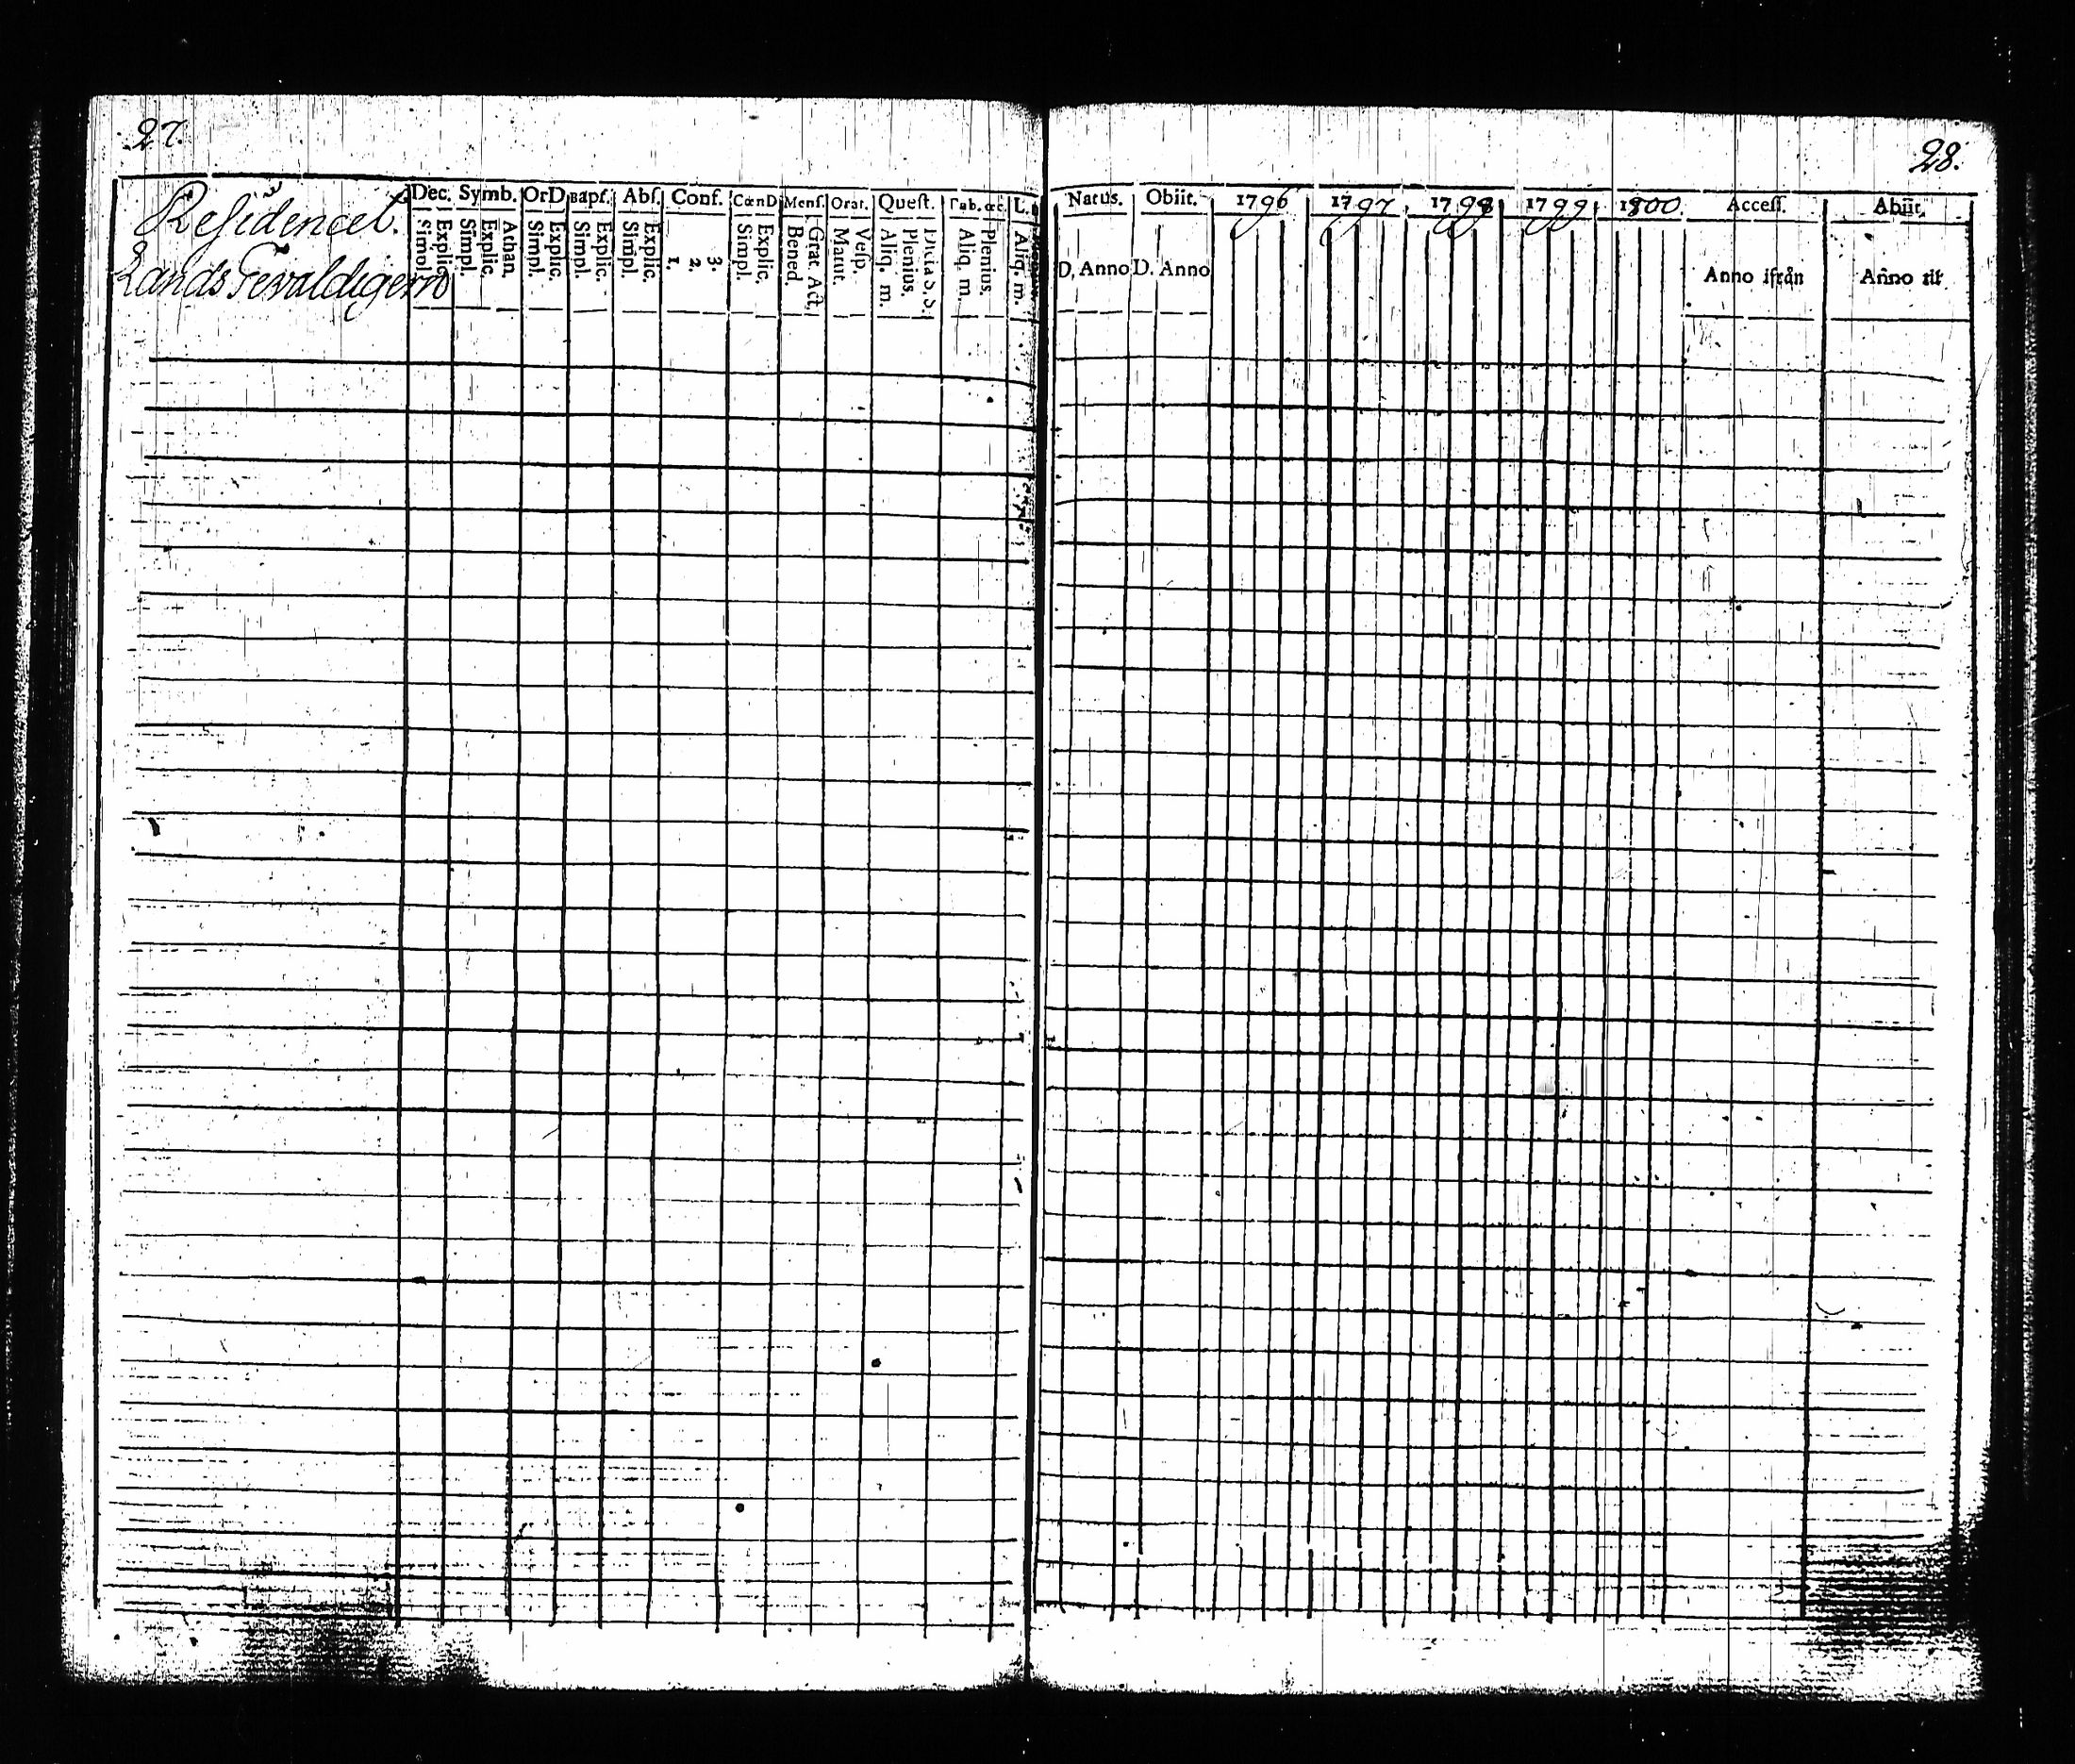 27.
Residencet.
Lands Gevaldigern
Dec. Symb. OrD Bapſ. Abſ. Conf. CœnD Menſ. Orat. Queſt. Tab. œc. L.
Simpl. Explic. Simpl. Explic. Athan. Simpl. Explic. Simpl. Explic. Simpl. Explic. 1. 2. 3. Simpl. Explic. Bened. Grat. Act. Matut. Veſp. Aliq. m. Plenius. Dicta S. S. Aliq. m. Plenius. Aliq. m.
28.
Natus. Obiit. 1796 1797 1798 1799 1800. Acceſſ. Abiit.
D, Anno D. Anno Anno ifrån Anno til